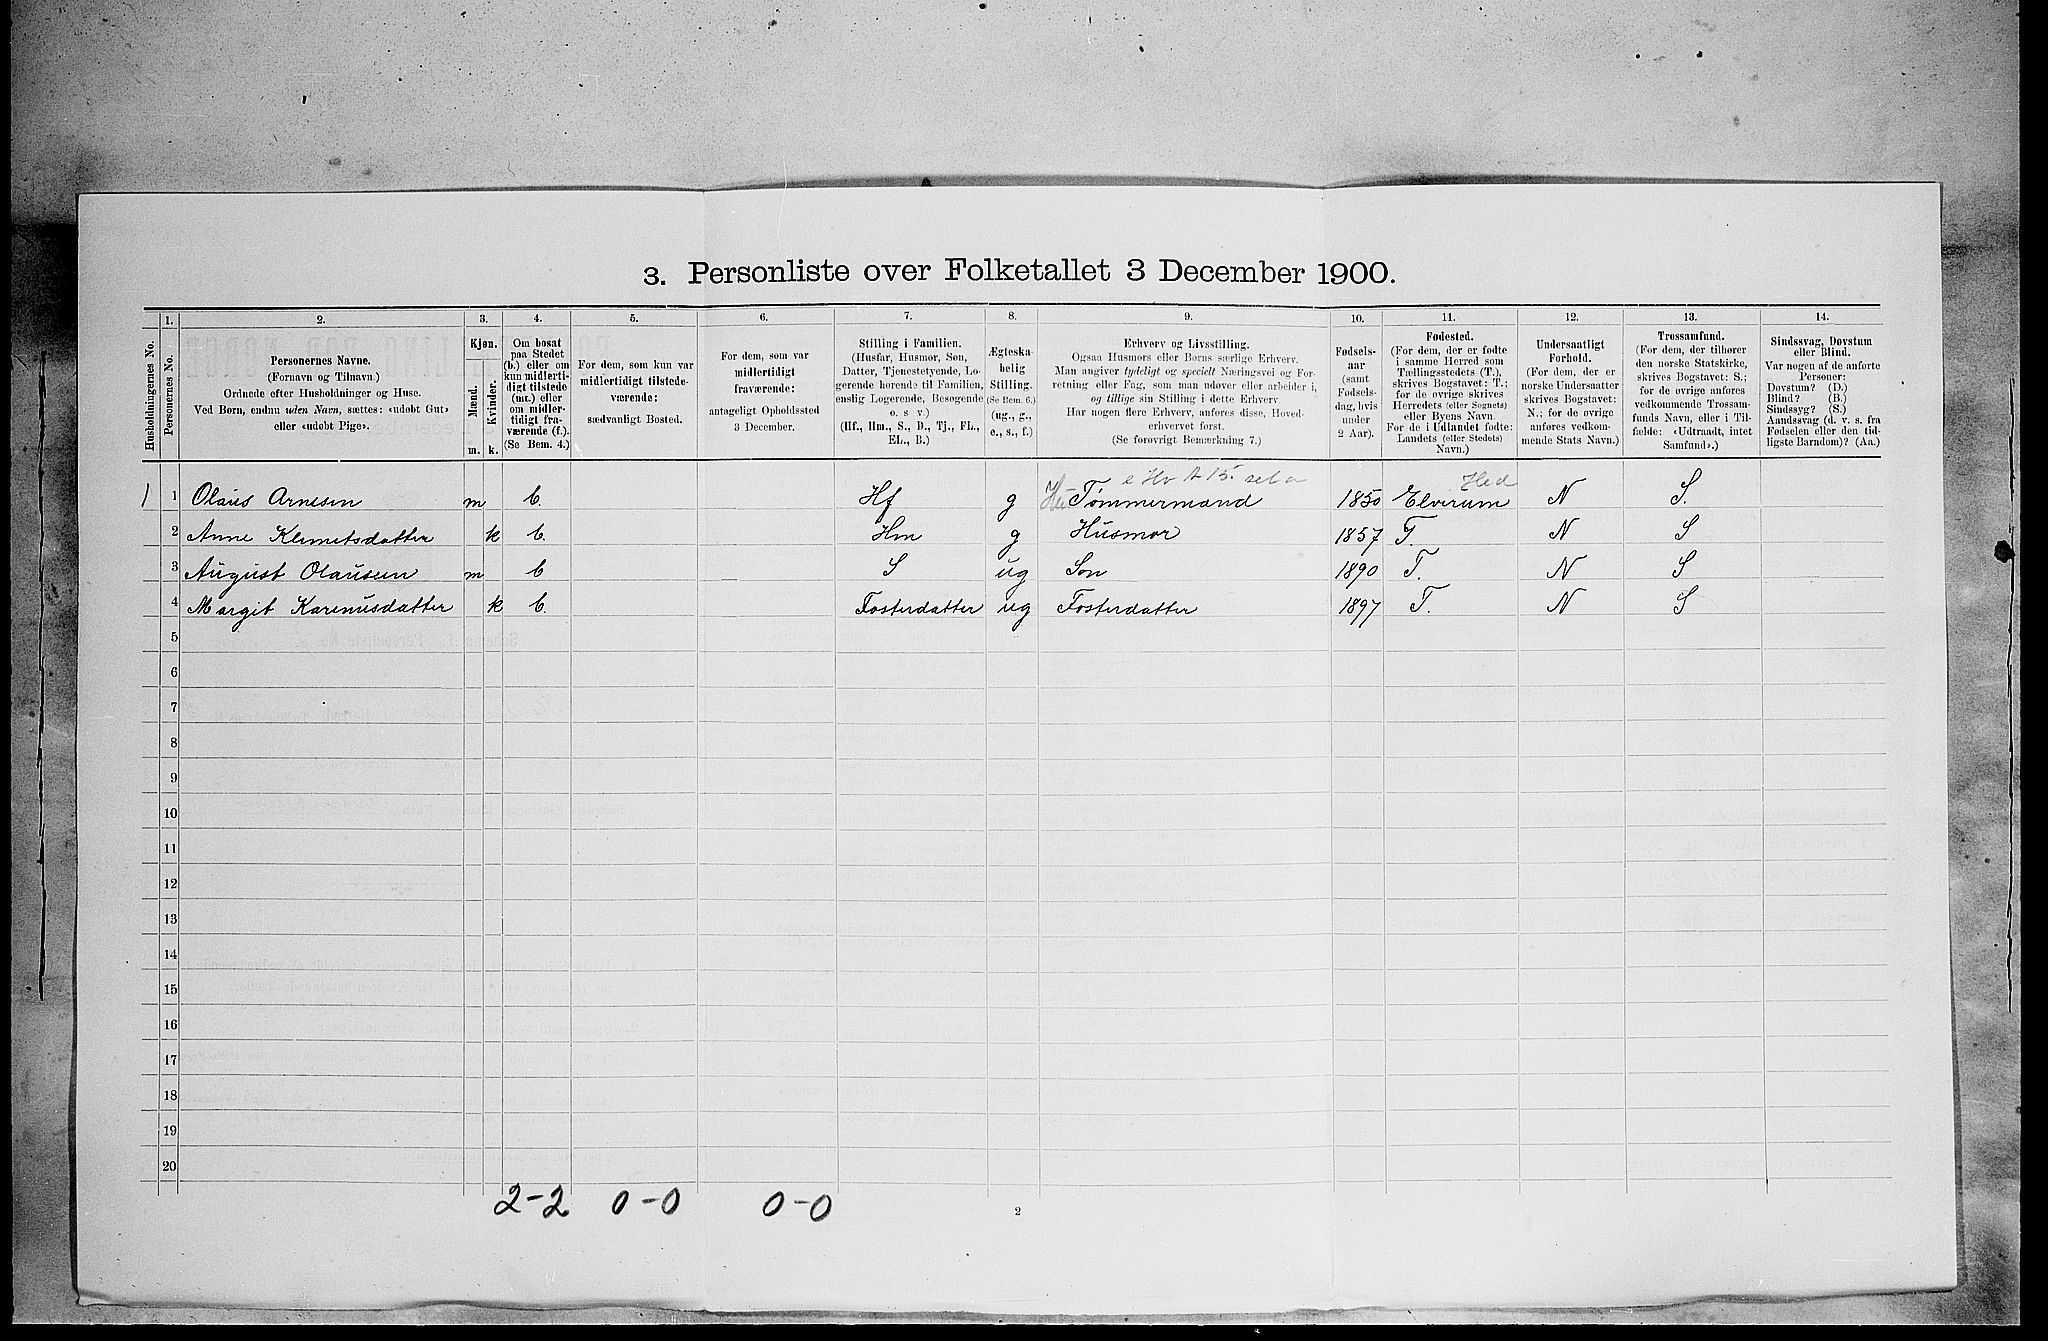 3. Personliste over Folketallet 3 December 1900.
Husholdningernes No.
1.
Personernes No.
2.
Personernes Navne.
(Fornavn og Tilnavn.)
Ordnede efter Husholdninger og Huse.
Ved Børn, endnu uden Navn, sættes: «udøbt Gut»
eller «udøbt Pige».
3.
Kjøn.
Mænd. Kvinder.
m. k.
4.
Om bosat
paa Stedet
(b.) eller om
kun midlerti-
digt tilstede
(mt.) eller
om midler-
tidigt fra-
værende (f.).
(Se Bem. 4.)
5.
For dem, som kun var
midlertidigt tilstede-
værende:
sædvanligt Bosted.
6.
For dem, som var
midlertidigt
fraværende:
antageligt Opholdssted
3 December.
7.
Stilling i Familien.
(Husfar, Husmor, Søn,
Datter, Tjenestetyende, Lo-
gerende hørende til Familien,
enslig Logerende, Besøgende
o. s v.)
(Hf., Hm., S., D., Tj., FL.,
EL., B.)
8.
Ægteska-
belig
Stilling.
(Se Bem. 6.)
(ug., g.,
e., s., f.)
9.
Erhverv og Livsstilling.
Ogsaa Husmors eller Børns særlige Erhverv.
Man angiver tydeligt og specielt Næringsvei og For-
retning eller Fag, som man udøver eller arbeider i,
og tillige sin Stilling i dette Erhverv.
Har nogen flere Erhverv, anføres disse, Hoved-
erhvervet først.
(Se forøvrigt Bemærkning 7.)
10.
Fødsels-
aar
(samt
Fødsels-
dag, hvis
under
2 Aar).
11.
Fødested.
(For dem, der er fødte
i samme Herred som
Tællingsstedets (T.),
skrives Bogstavet: T.;
for de øvrige skrives
Herredets (eller Sognets)
eller Byens Navn.
For de i Udlandet fødte:
Landets (eller Stedets)
Navn.)
12.
Undersaatligt
Forhold.
(For dem, der er
norske Undersaatter
skrives Bogstavet:
N.; for de øvrige
anføres vedkom-
mende Stats Navn.)
13.
Trossamfund.
(For dem, der tilhører
den norske Statskirke,
skrives Bogstavet: S.;
for de øvrige anføres
vedkommende Trossam-
funds Navn, eller i Til-
fælde: «Udtraadt, intet
Samfund».)
14.
Sindssvag, Døvstum
eller Blind.
Var nogen af de anførte
Personer:
Døvstum? (D.)
Blind? (B.)
Sindssyg? (S.)
Aandssvag (d. v. s. fra
Fødselen eller den tid-
ligste Barndom)? (Aa.)
1 1 Olaus Arnesen m b. Hf g Tømmermand 1850 Elverum Hed N S.
2 Anne Klemetsdatter k b. Hm g Husmor 1857 T. N S
3 August Olausen m b S ug Søn 1890 T. N S
4 Margit Karenusdatter k b. Fosterdatter ug Fosterdatter 1897 T. N S
5
6
7
8
9
10
11
12
13
14
15
16
17
18
19
20
2-2 0-0 0-0
2